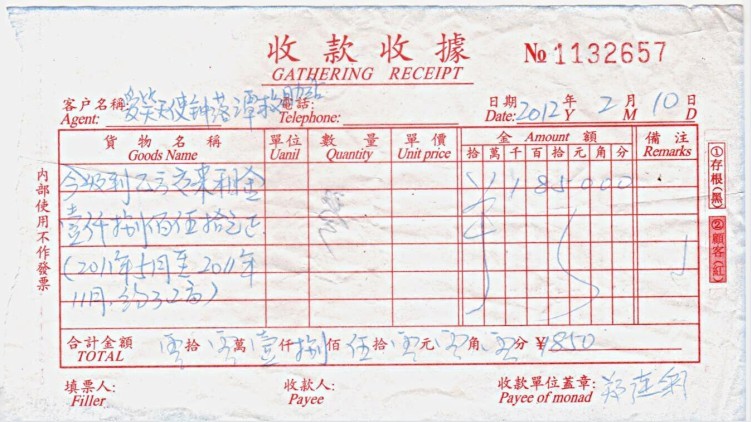 收款收據
GATHERING RECEIPT
№ 1132657
客户名稱 愛笑天使 落潭救助站
Agent:
電話:
Telephone:
日期 2012 年 2 月 10 日
Date: Y M D
貨物名稱 單位 數量 單價 金 Amount 額 備注
Goods Name Uanil Quantity Unit price 拾 萬 千 百 拾 元 角 分 Remarks
今收到 租金 ¥ 1 8 5 0 0 0
壹仟捌佰伍拾元正
(2011年5月至2011年
11月,
合計金額 零拾零萬壹仟捌佰伍拾零元零角零分 ¥1850
TOTAL
填票人:
Filler
收款人:
Payee
收款單位蓋章:
Payee of monad
内部使用不作發票
①存根(黑)
②顧客(紅)